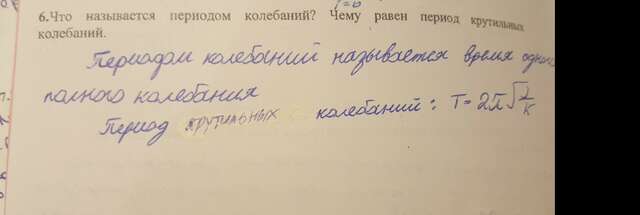 6.Что называется периодом колебаний? Чему равен период крутильных
колебаний.
Периодом колебаний называется время одного
полного колебания
Период крутильных колебаний: T=2π√